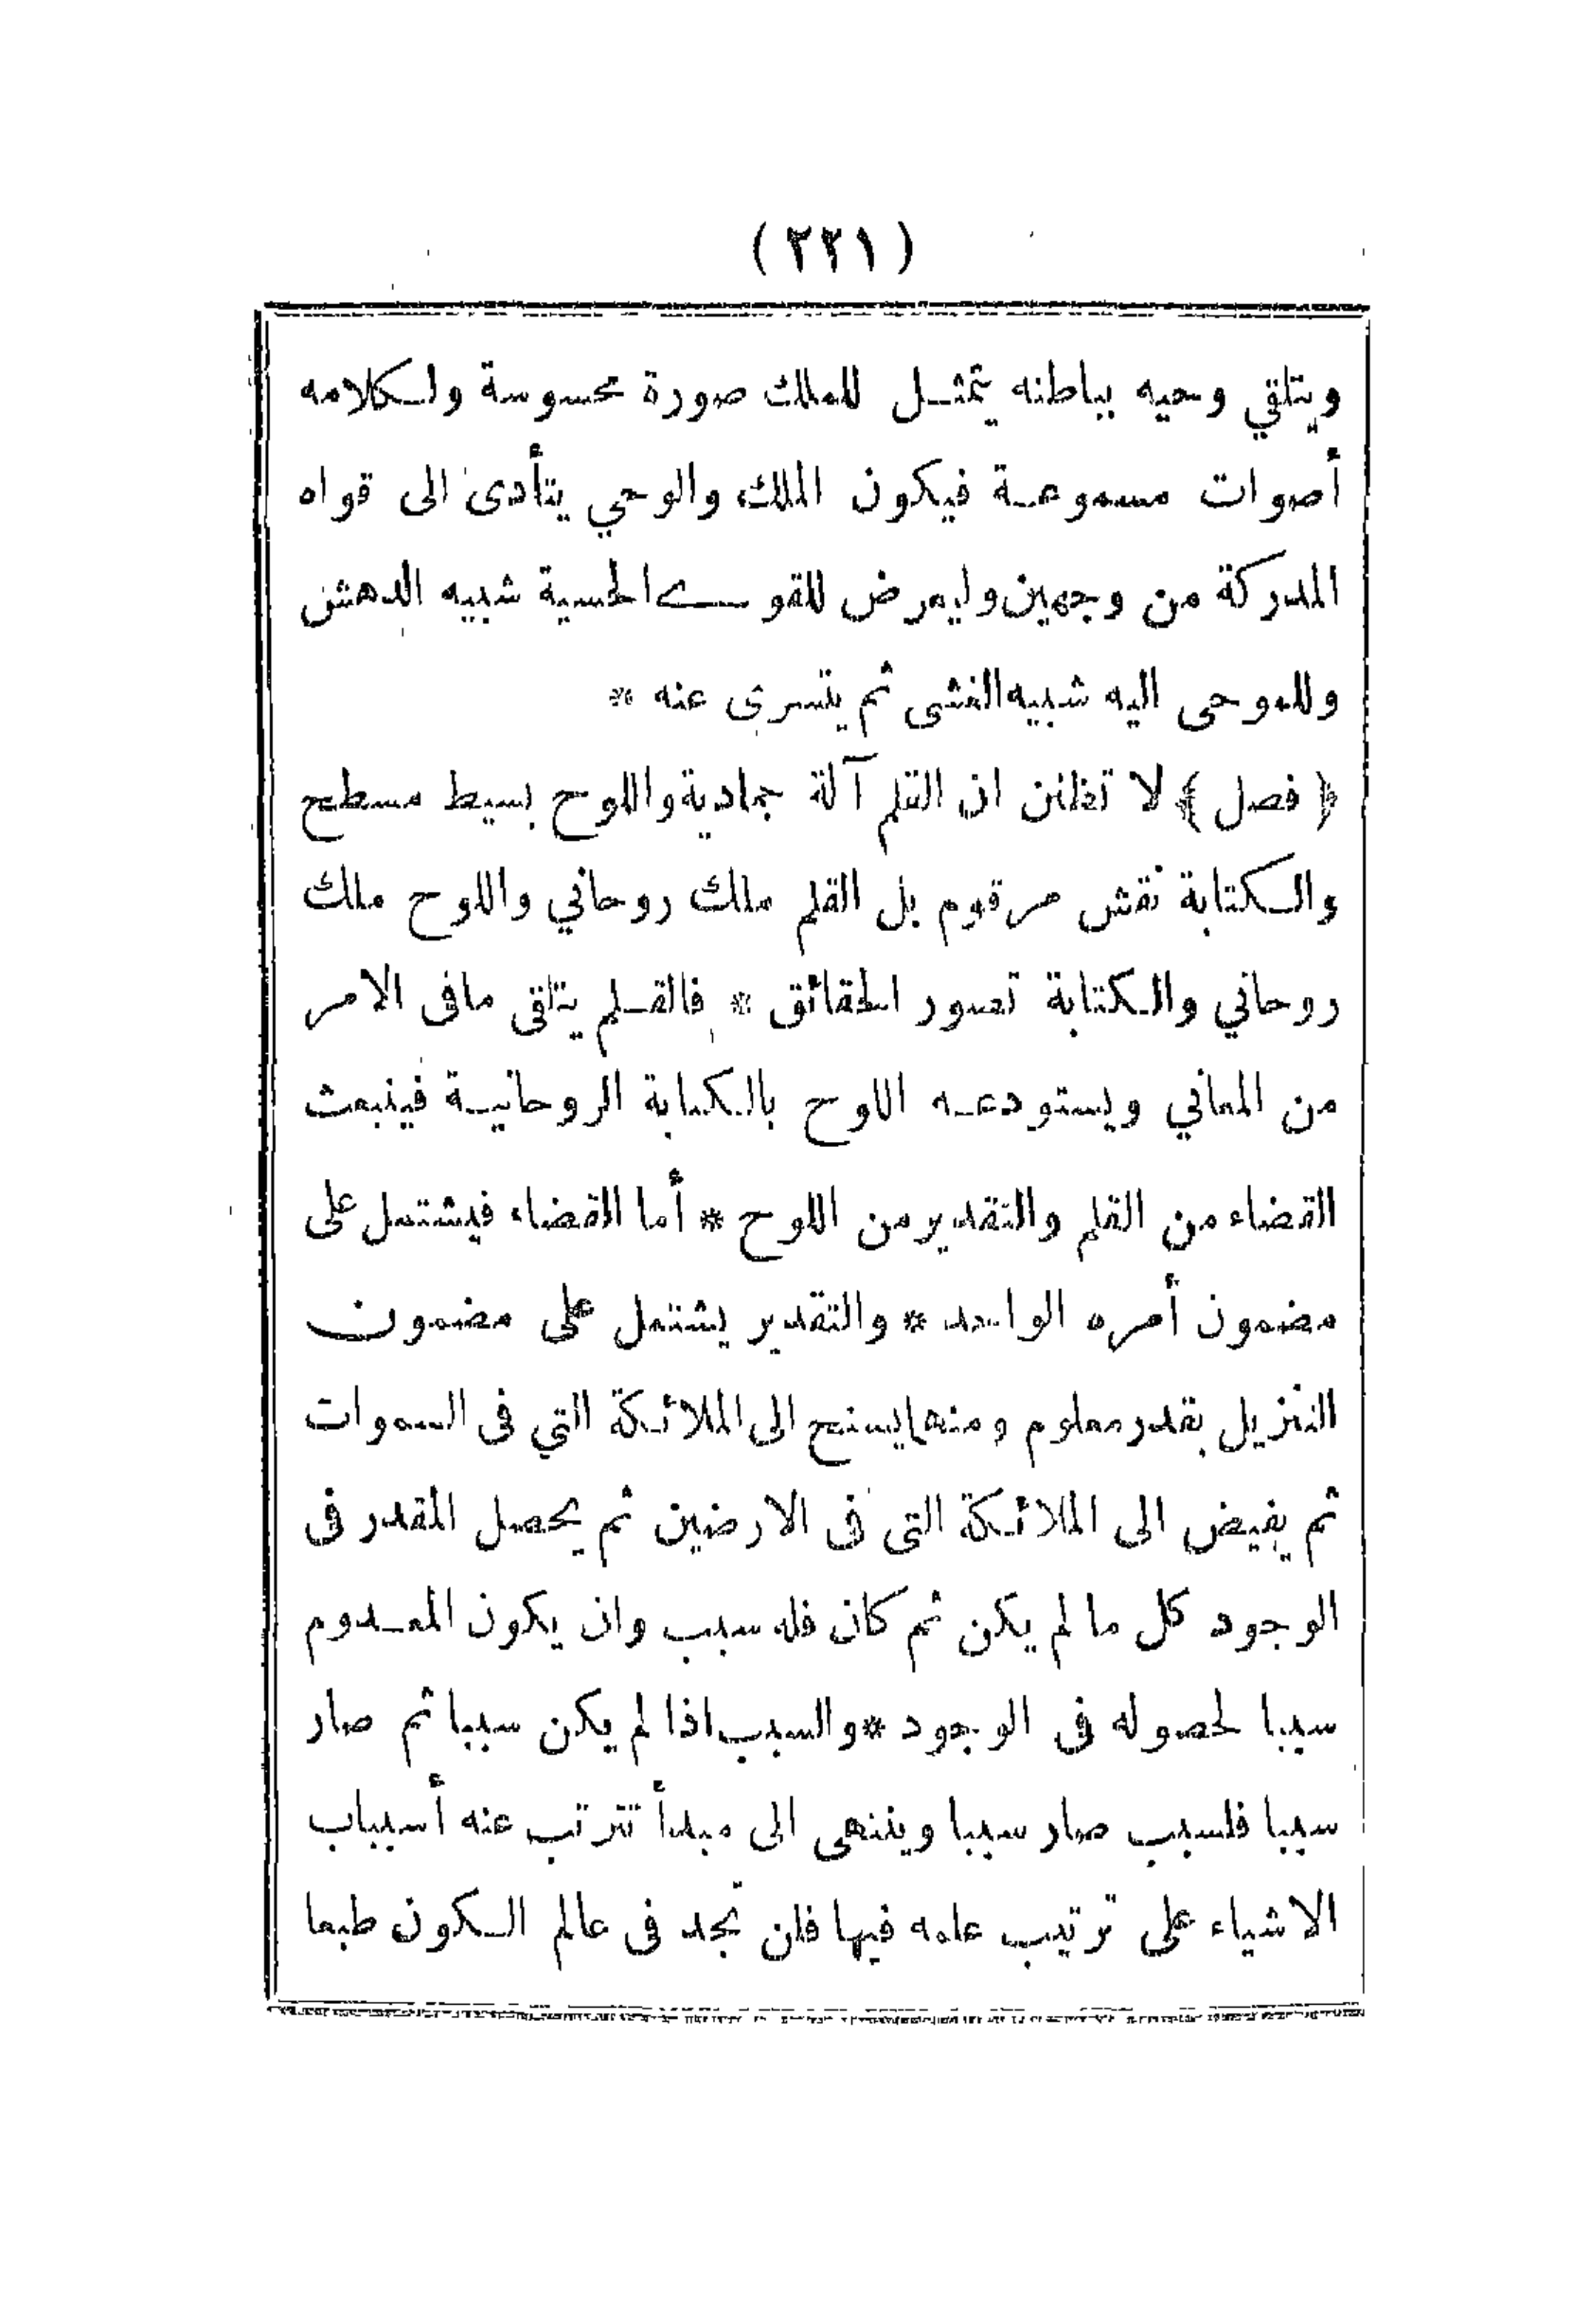 (٢٢١)
ويتلقي وحيه بباطنه يتمثل للملك صورة محسوسة ولكلامه
أصوات مسموعة فيكون الملك والوحي يتأدى الى قواه
المدركة من وجهين وليعرض للقوى الحسية شبيه الدهش
وللموحى اليه شبيه الغشى ثم يتسرى عنه *
﴿ فصل ﴾ لا تظنن ان القلم آلة جمادية واللوح بسيط مسطح
والكتابة نقش مرقوم بل القلم ملك روحاني واللوح ملك
روحاني والكتابة تصور الحقائق * فالقلم يتلقى مافى الامر
من المعاني ويستودعه اللوح بالكتابة الروحانية فينبعث
القضاء من القلم والتقدير من اللوح * أما القضاء فيشتمل على
مضمون أمره الواحد * والتقدير يشتمل على مضمون
التنزيل بقدر معلوم ومنها يسنح الى الملائكة التي فى السموات
ثم يفيض الى الملائكة التى فى الارضين ثم يحصل المقدر فى
الوجود كل مالم يكن ثم كان فله سبب وان يكون المعدوم
سببا لحصوله فى الوجود * والسبب اذا لم يكن سببا ثم صار
سببا فلسبب صار سببا وينتهى الى مبدأ تترتب عنه أسباب
الاشياء على ترتيب علمه فيها فلن تجد فى عالم الكون طبعا